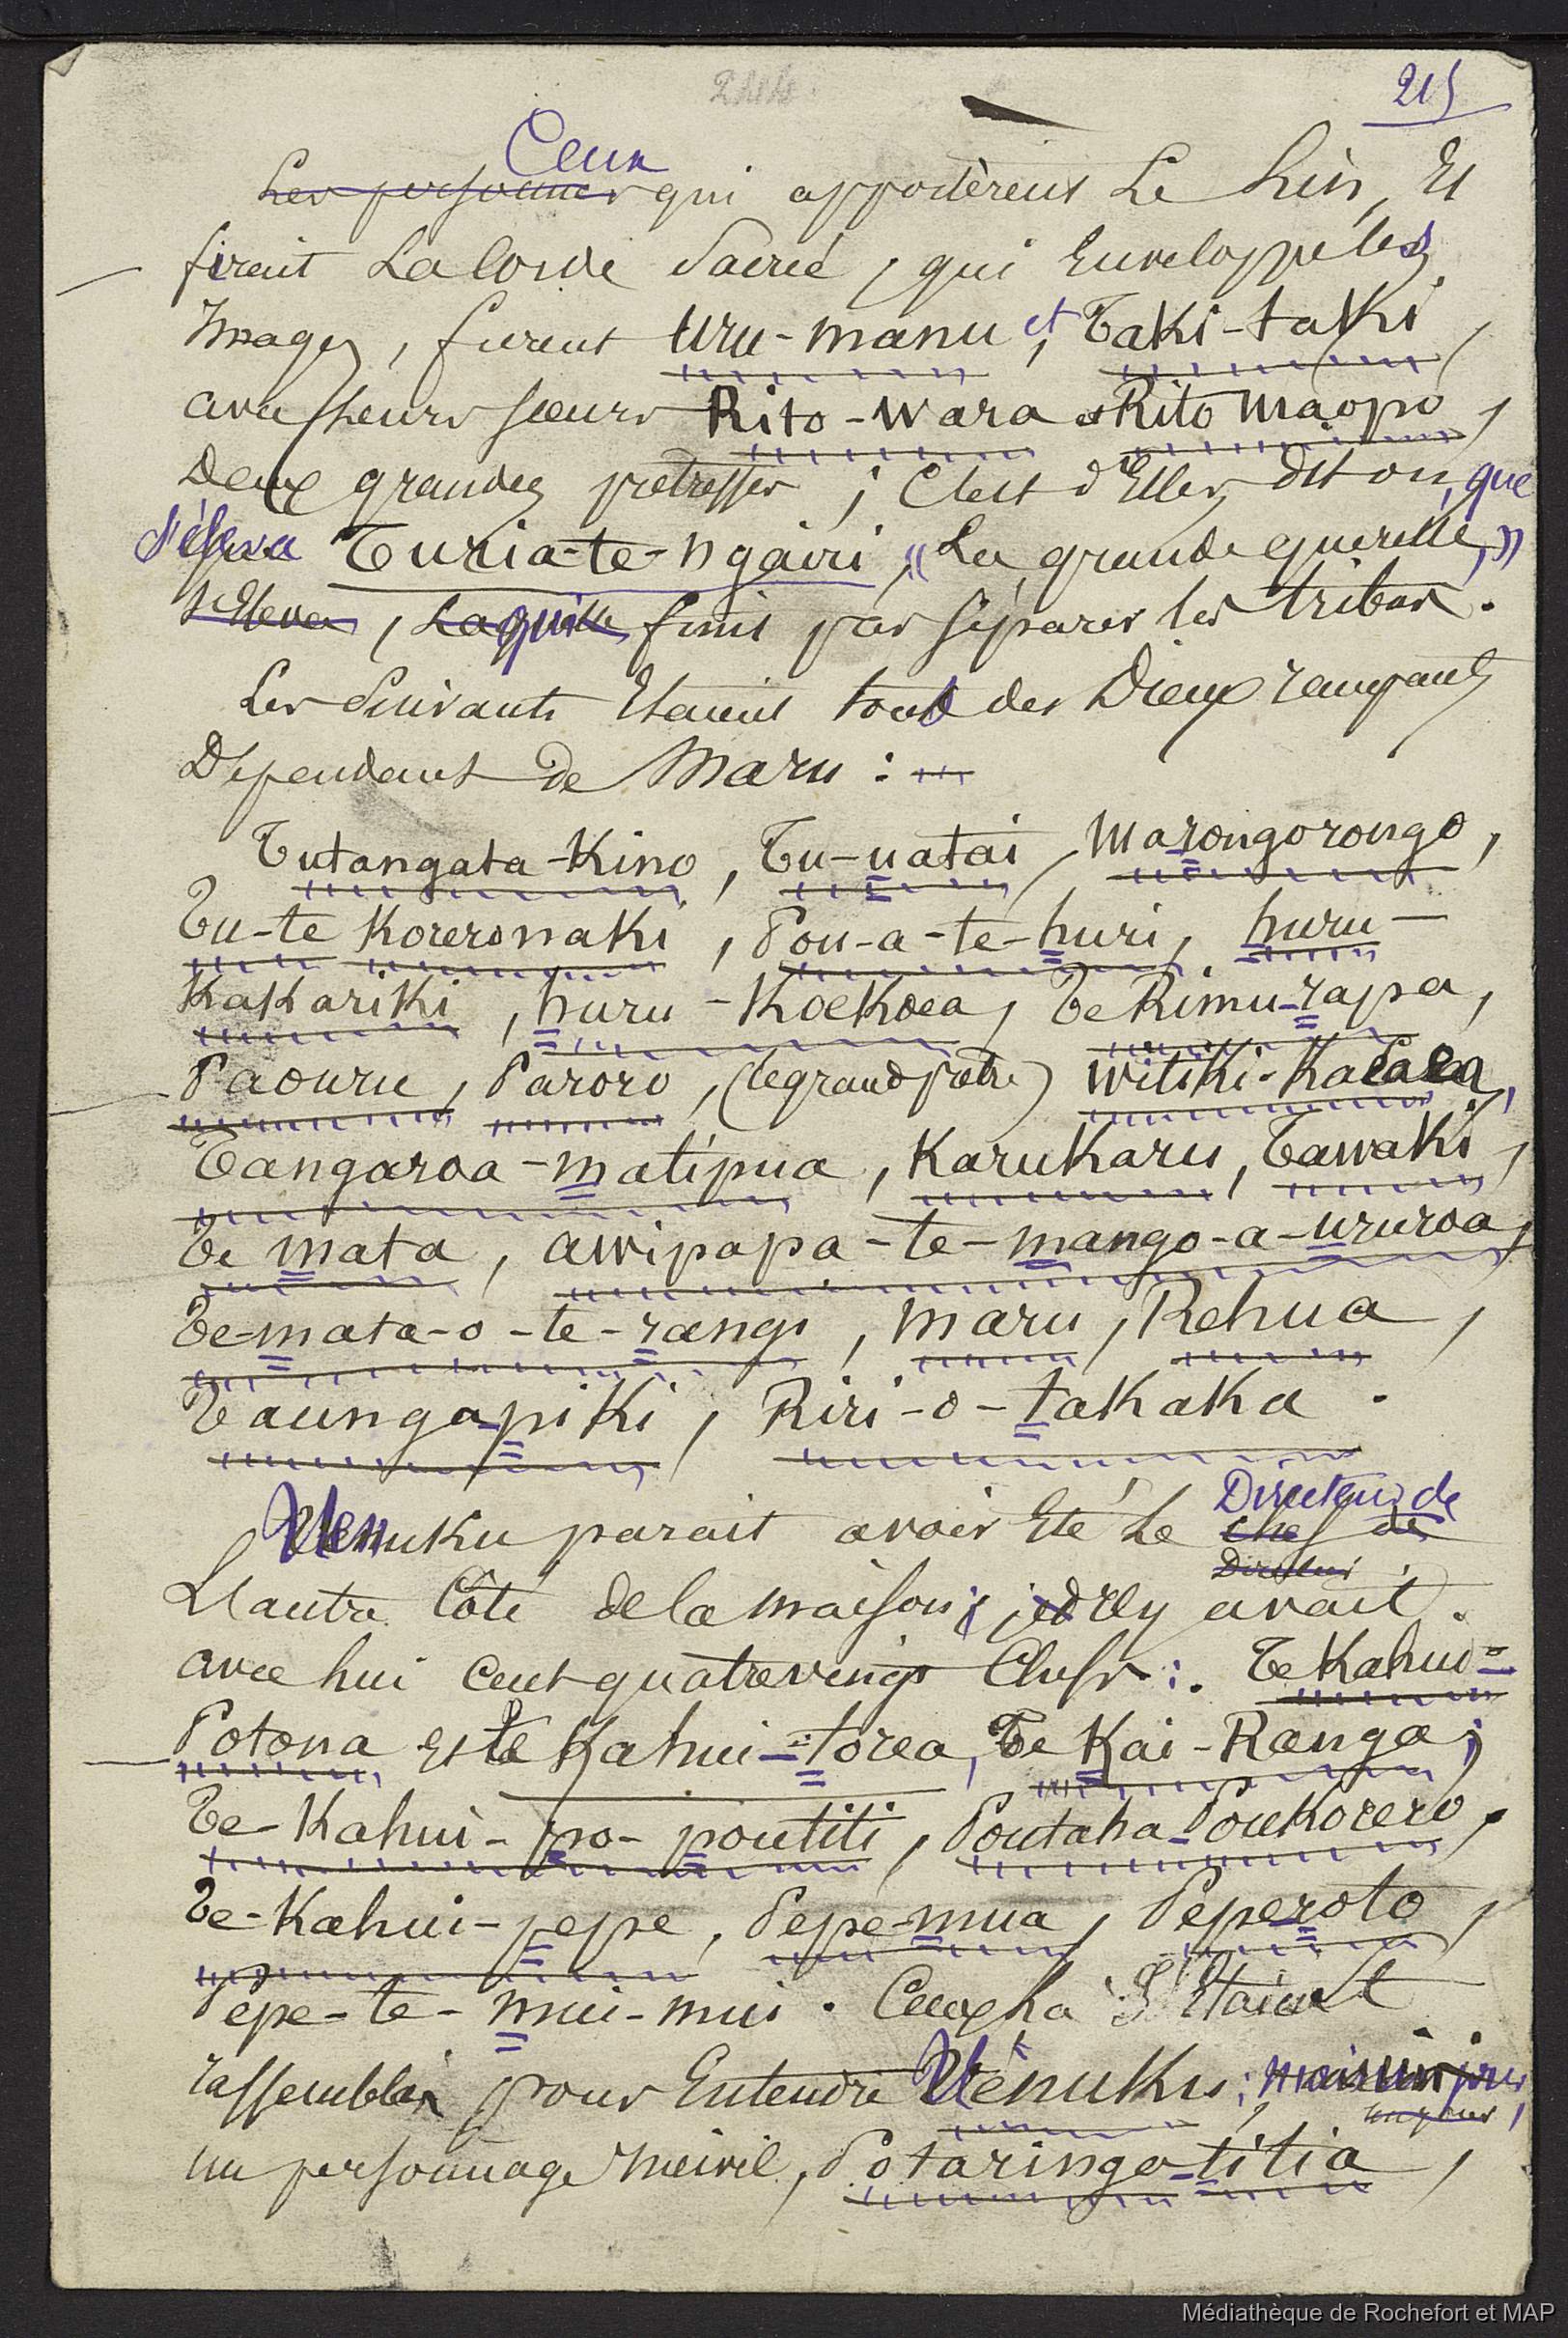 215
Ceux
Les personnes qui apportèrent Le Lin, Et
firent La Corde Sacrée, qui Enveloppé les
Images, furent Uru-manu et, Taki-taki,
avec Leurs sœurs Rito-wara et Rito maopo,
Deux grandes prêtresses ; C'est d'Elles, dit on, que
s'éleva Turia-te-ngairi, « La grande querelle, »
s'Eleva, Laquelle finit par séparer les tribus.
Les Suivants Etaient tous des Dieux rampants
Dependant de Maru :
Tutangata-Kino, Tu-uatai, Marongorongo,
Tu-te Koreronaki, Pou-a-te-huri, huru-
Kakariki, huru-Koekoea, Te Rimu-rapa,
Paouru, Paroro, (le grand prêtre) Witiki-Kalara,
Tangaroa-matipua, Karukaru, Tawaki,
Te mata, awipapa-te-mango-a-ururoa,
Te-mata-o-te-rangi, Maru, Rehua,
Taungapiki, Riri-o-takaka.
Directeur de
Uenuku parait avoir Eté Le chef de
Directeur
L'autre Côté de la maison ; il y avait.
avec hui cent quatrevingt Chefs : Te Kahui=
Potona et te Kahui-torea, Te Kai-Ranga ;
Te-Kahui-po-poutiti, Poutaha-Poukorero,
Te-Kahui-pepe, Pepe-mua, Peperoto,
Pepe-te-mui-mui. Ceux La S'Etaient
rassemblés pour Entendre Uenuku ;
un jour,
un personnage incivil, Potaringa-titia,
Médiathèque de Rochefort et MAP